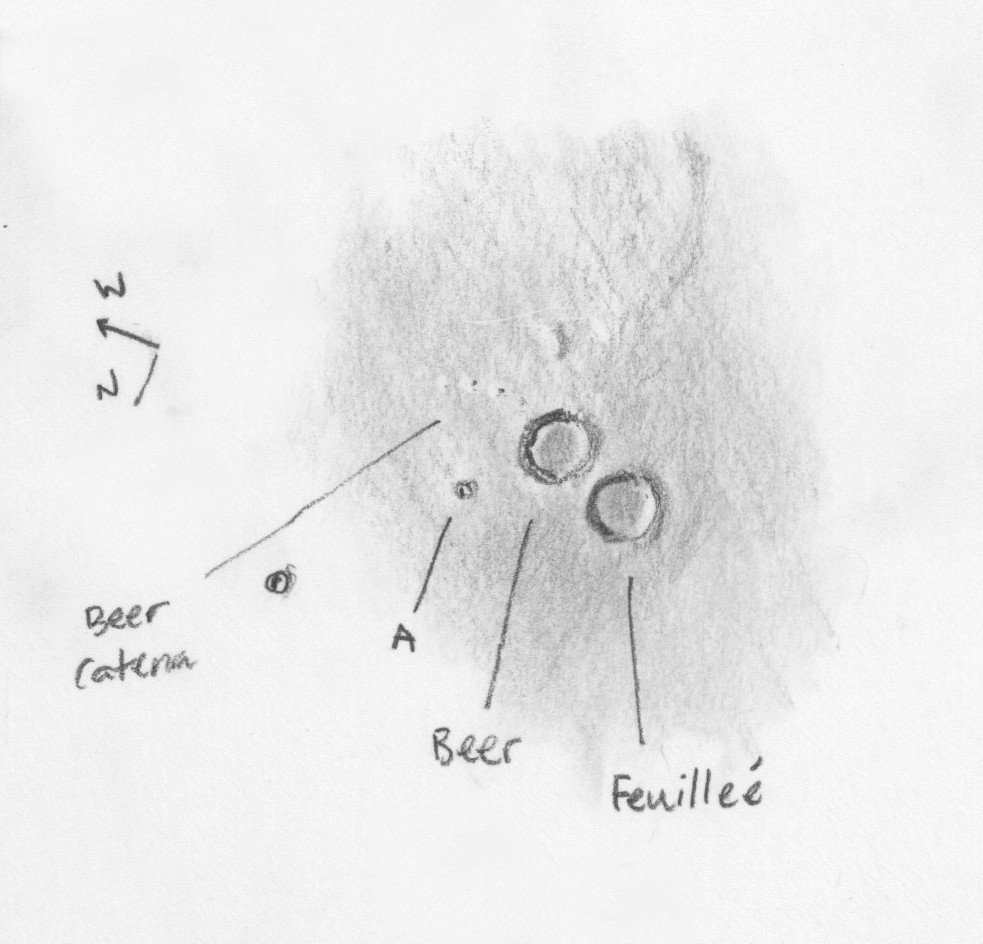 W
N
Beer
Catena
A
Beer
Feuilleé